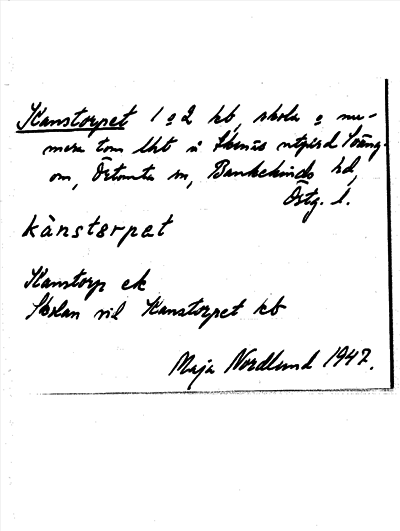 Kanstorpet 1 o 2 hb, skola o nu-
mera tom lht u Skenäs utgård Sväng-
om, Östomta sn, Bankekinds hd,
Östg. l.
kånstɵrpat
Kanstorp ek
Skolan vil Kanstorpet kb
Maja Nordlund 1947.